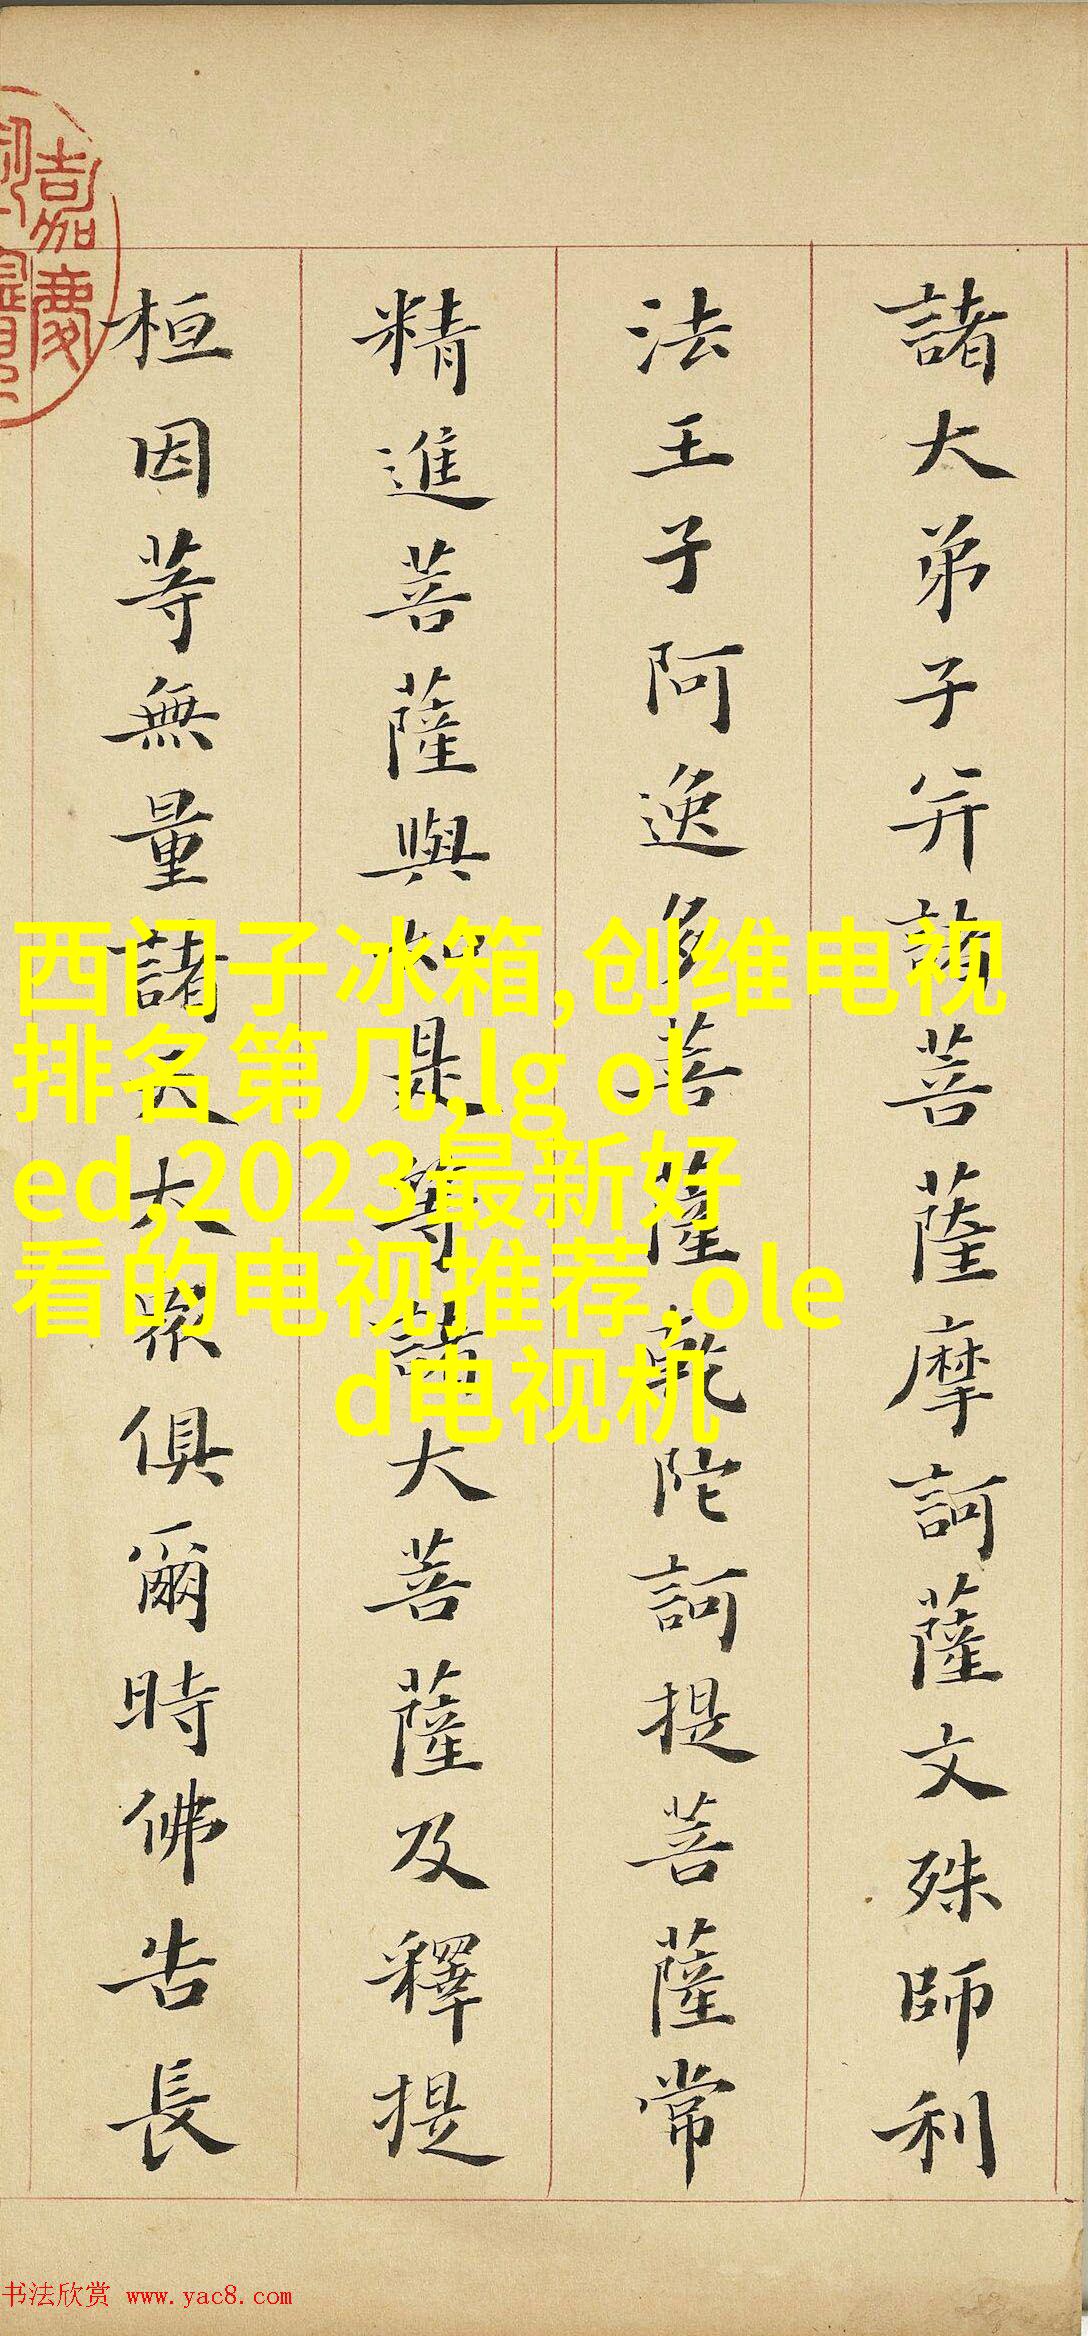 諸大弟子并諸菩薩摩訶薩文殊師利
法王子阿逸多菩薩乾陀訶提菩薩常
精進菩薩與如是等諸大菩薩及釋提
桓因等無量諸天大眾俱爾時佛告長
嘉慶
西门子冰箱,创维电视
排名第几,lg ol
ed,2023最新好
看的电视推荐,ole
d电视机
书法欣赏 www.yac8.com